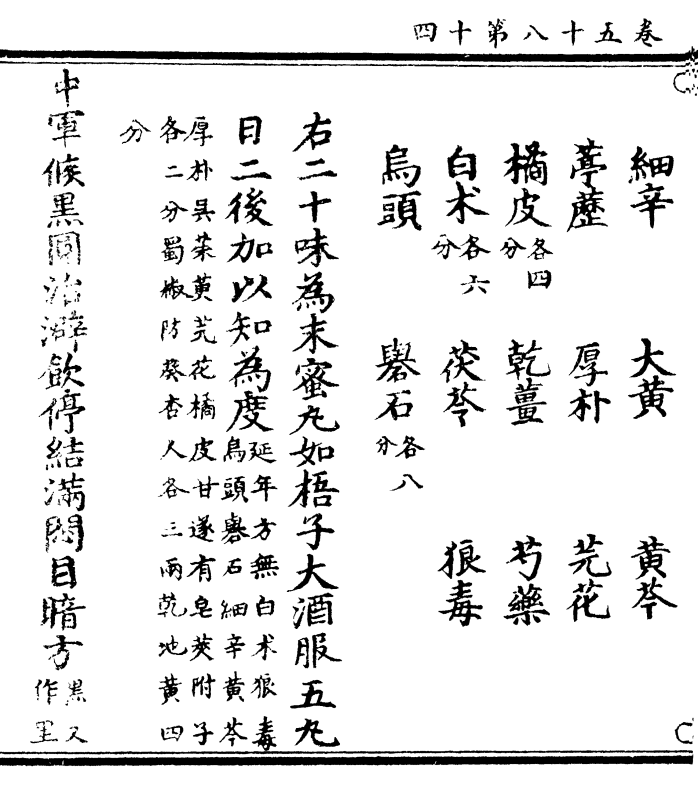 卷五十八第十四
細辛 大黄 黄芩
葶藶 厚朴 芫花
橘皮各四分 乾薑 芍藥
白术各六分 茯苓 狼毒
烏頭 礜石各八分
右二十味為末蜜丸如梧子大酒服五丸
日二後加以知為度延年方無白术狼毒
烏頭礜石細辛黄芩
厚朴吴茱萸芫花橘皮甘遂有皂莢附子
各二分蜀椒防葵杏人各三兩乾地黄四
分
中軍候黒圓治澼飲停結滿悶目暗方黒又
作里